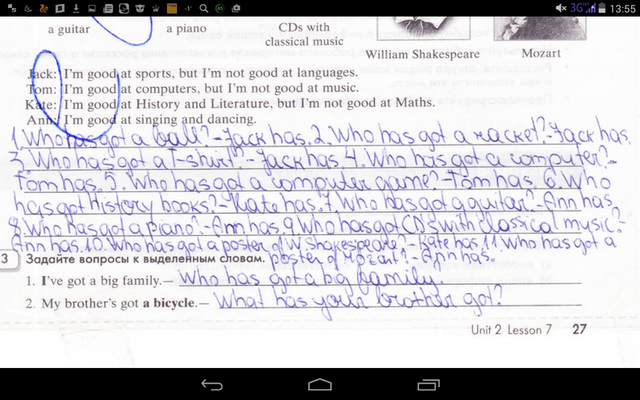 13:55
3G
a guitar a piano CDs with
classical music
William Shakespeare Mozart
Jack: I'm good at sports, but I'm not good at languages.
Tom: I'm good at computers, but I'm not good at music.
Kate: I'm good at History and Literature, but I'm not good at Maths.
Ann: I'm good at singing and dancing.
1. Who has got a ball? - Jack has. 2. Who has got a racket? - Jack has.
3. Who has got a T-shirt? - Jack has. 4. Who has got a computer? -
Tom has. 5. Who has got a computer game? - Tom has. 6. Who
has got History books? - Kate has. 7. Who has got a guitar? - Ann has.
8. Who has got a piano? - Ann has. 9. Who has got CDs with classical music?
Ann has. 10. Who has got a poster of W. Shakespeare? - Kate has. 11. Who has got a
poster of Mozart? - Ann has.
3 Задайте вопросы к выделенным словам.
1. I've got a big family. — Who has got a big family.
2. My brother's got a bicycle. — What has your brother got?
Unit 2 Lesson 7 27